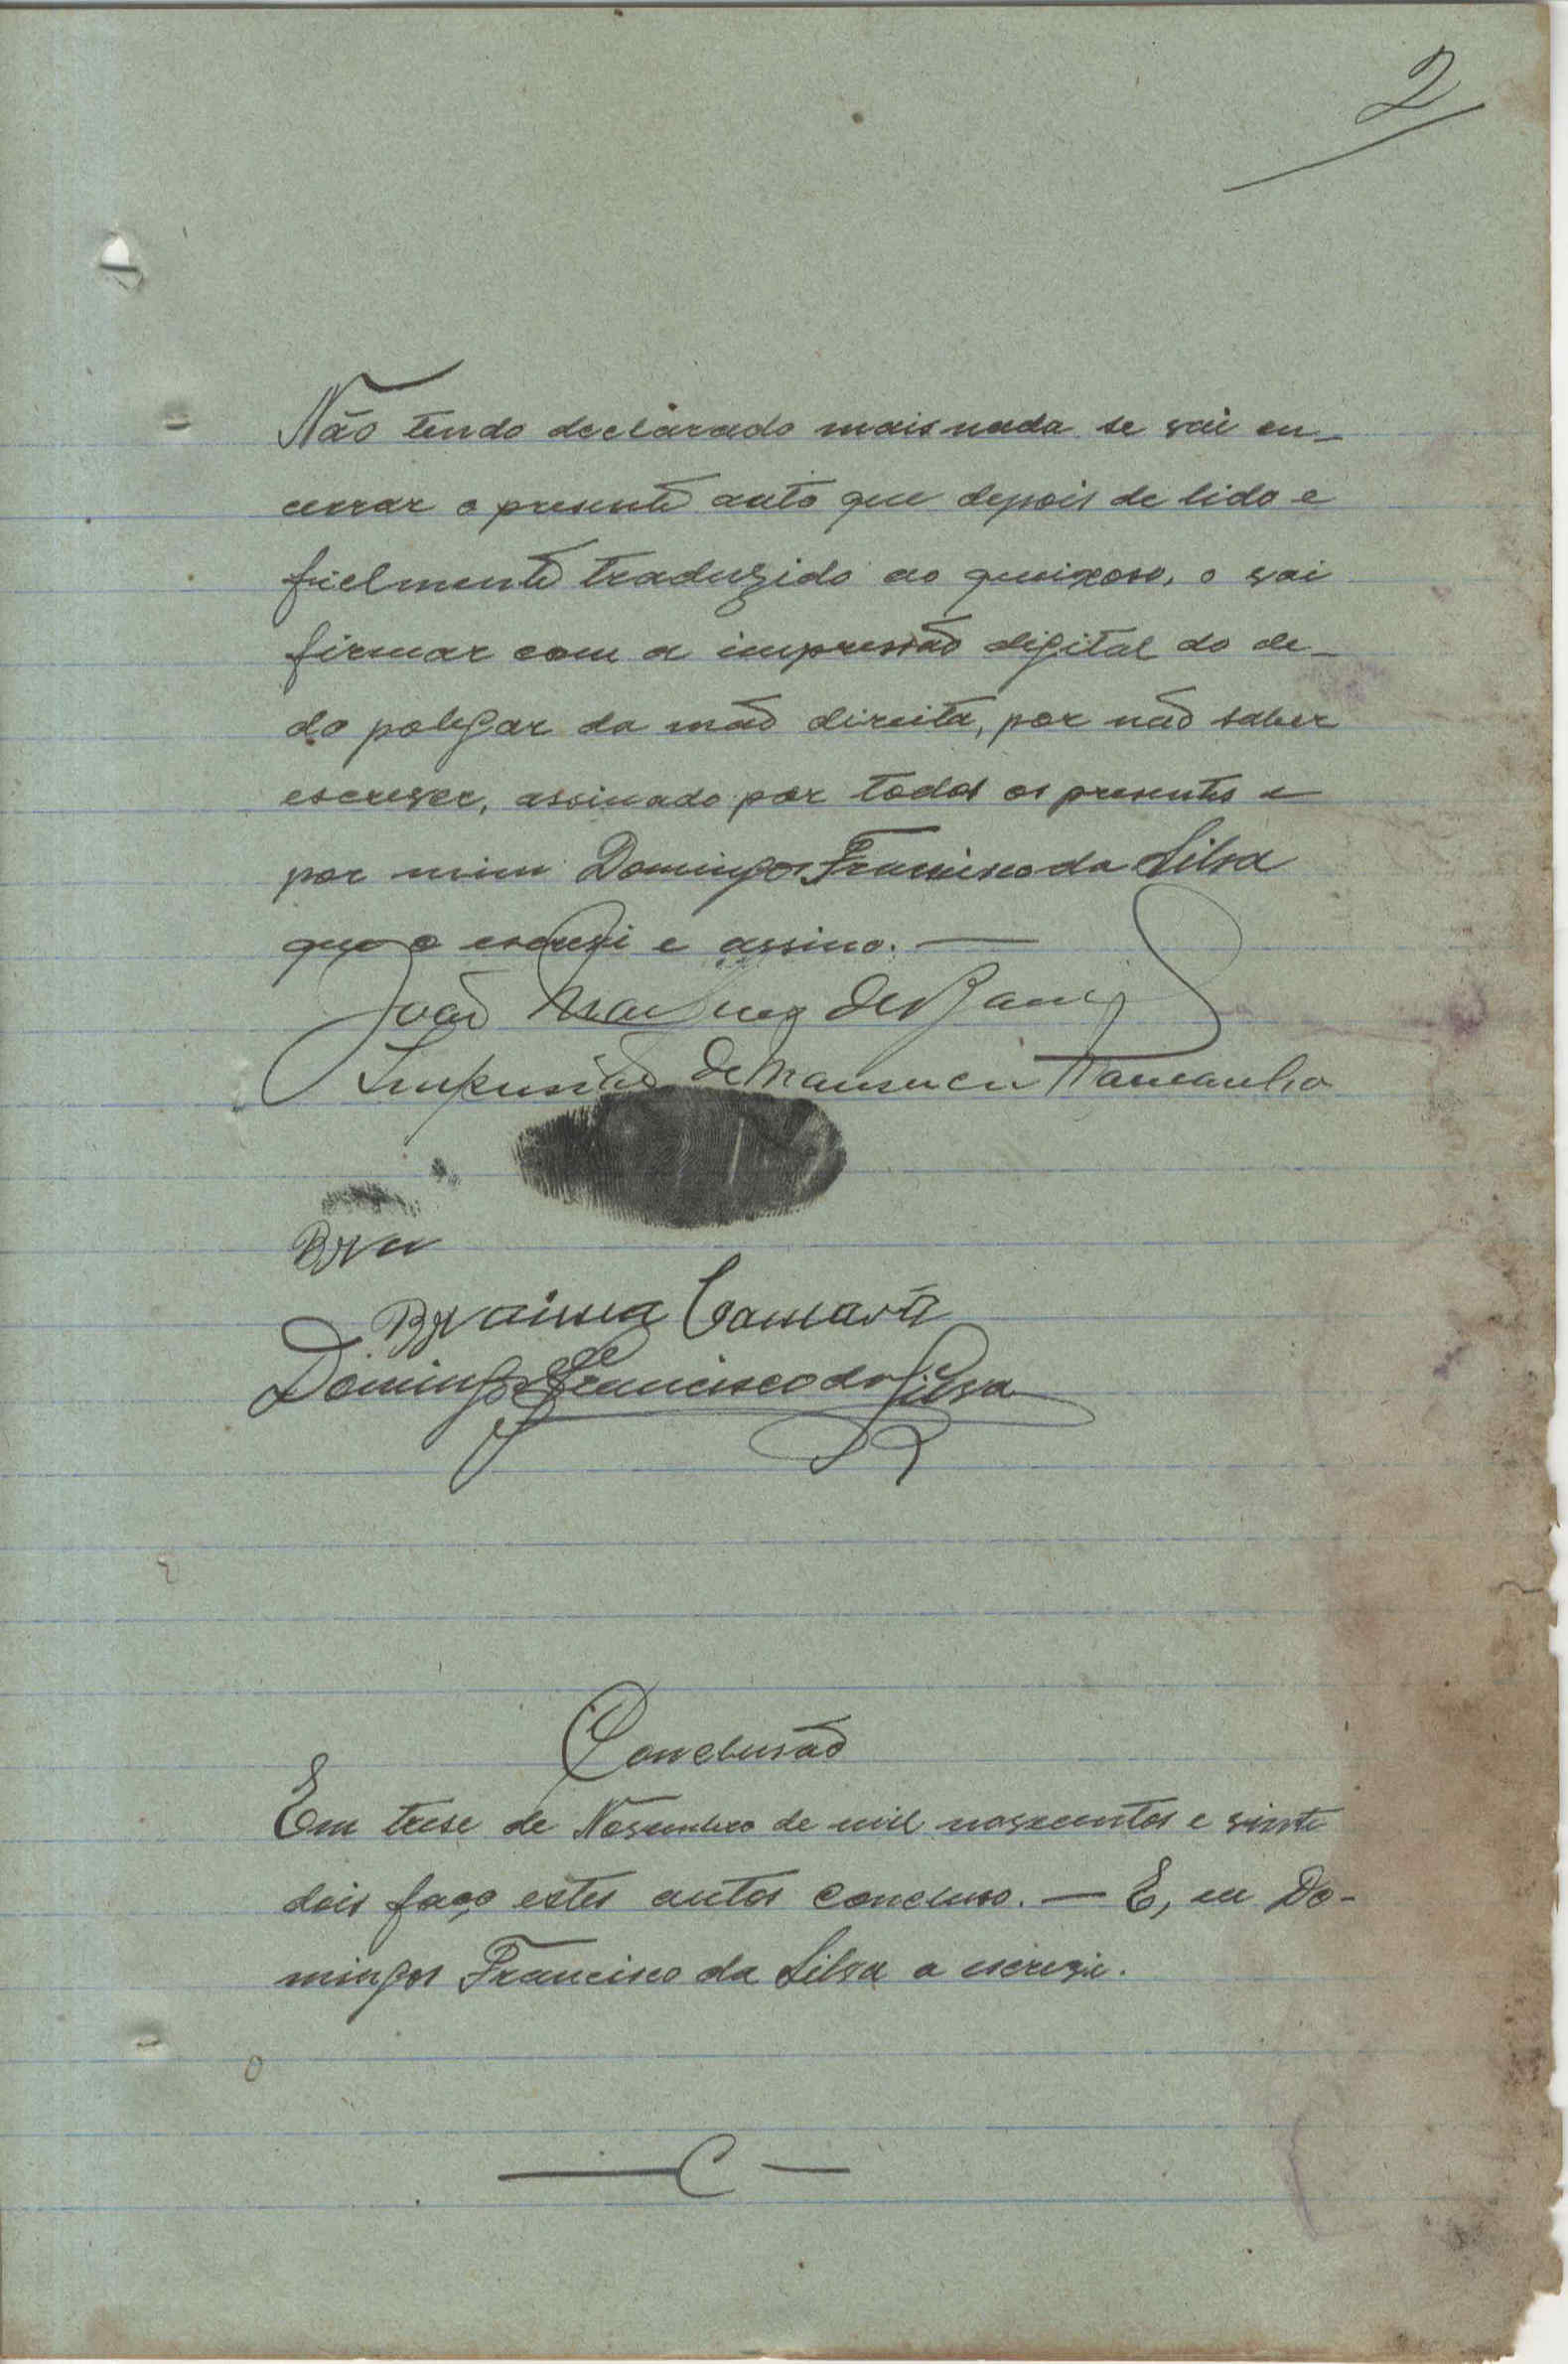 2
Não tendo declarado mais nada se vai en-
cerrar o presente auto que depois de lido e
fielmente traduzido ao queixoso, o vai
firmar com a impressão digital do de-
do polegar da mão direita, por não saber
escrever, assinado por todos os presentes e
por mim Domingos Francisco da Silva
que o escrevi e assino. —
João
Impressão de Mansucu
Bra
Braima Camará
Domingos Francisco da Silva
Conclusão
Em trese de Novembro de mil novecentos e vinte
dois faço estes autos concluso. — E, eu Do-
mingos Francisco da Silva o escrevi.
— C —